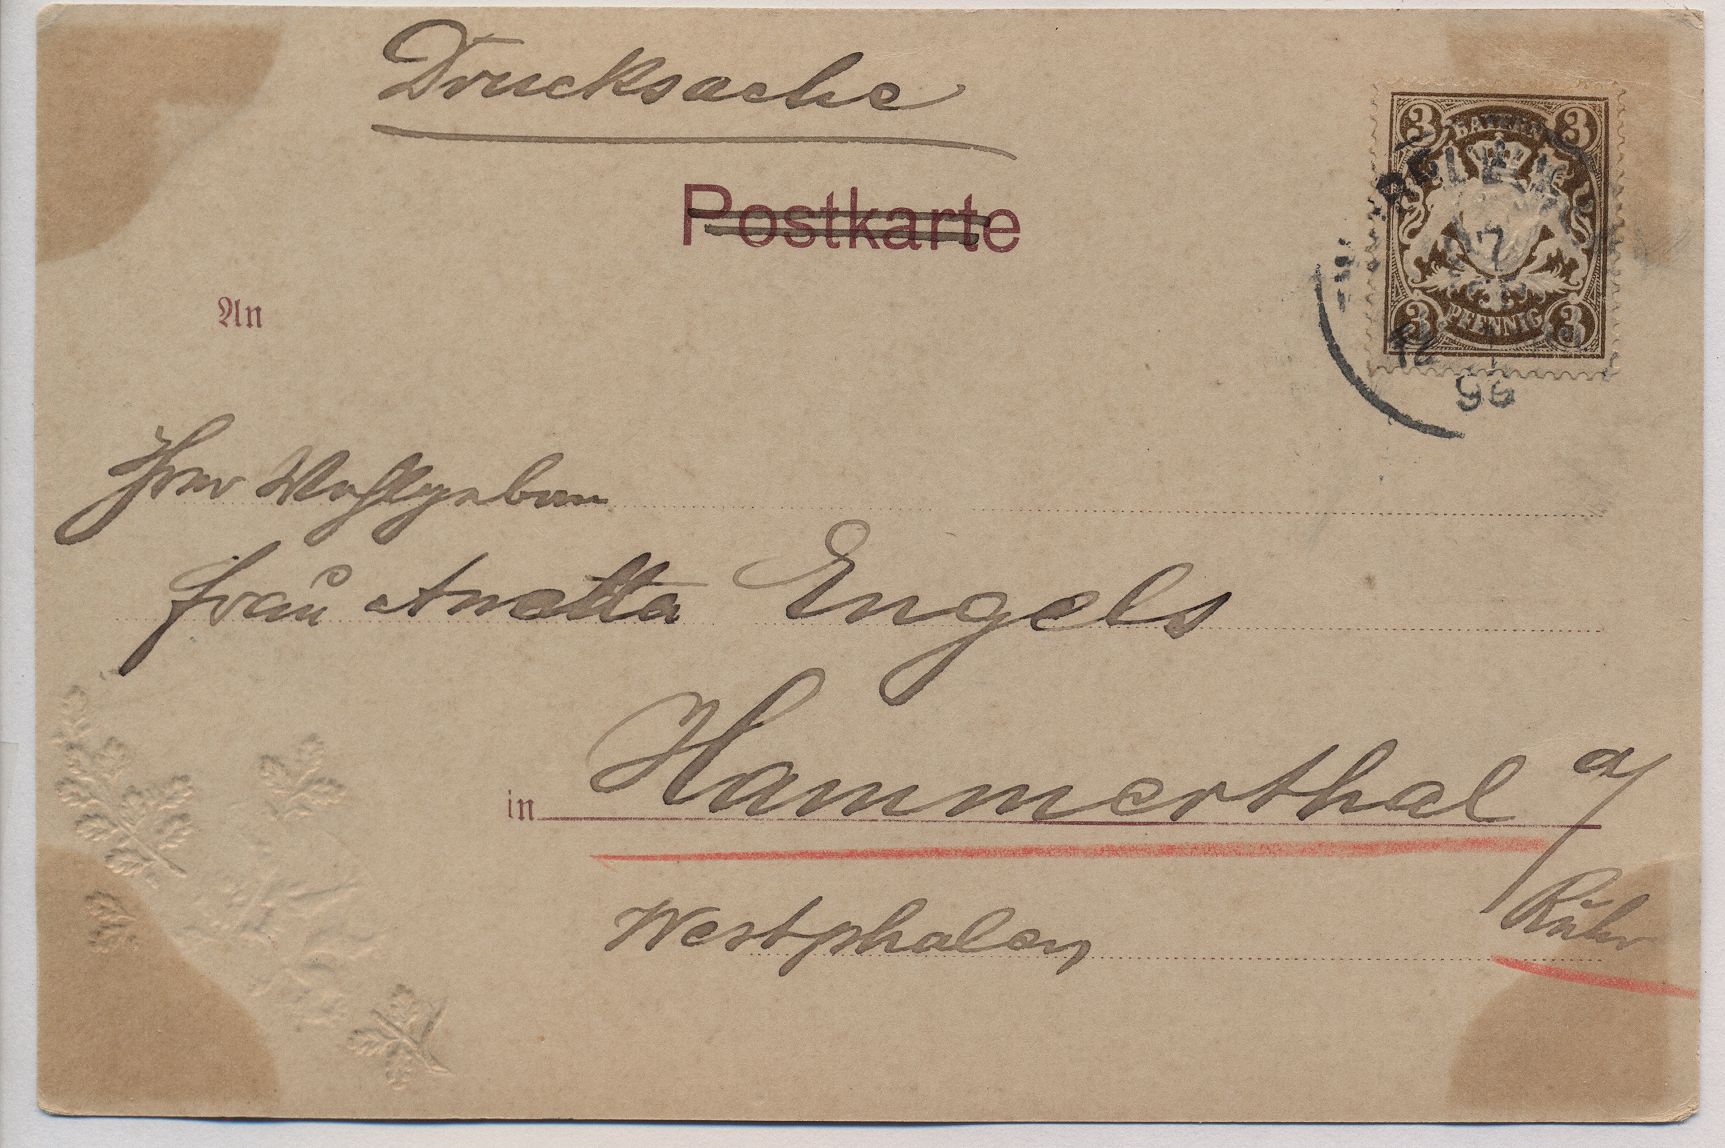 Drucksache
Postkarte
3 BAYERN 3
3 PFENNIG 3
7
12
96
An
Ihrer Wohlgeboren
Frau Anetta Engels
in Hammerthal a/
Westphalen Ruhr